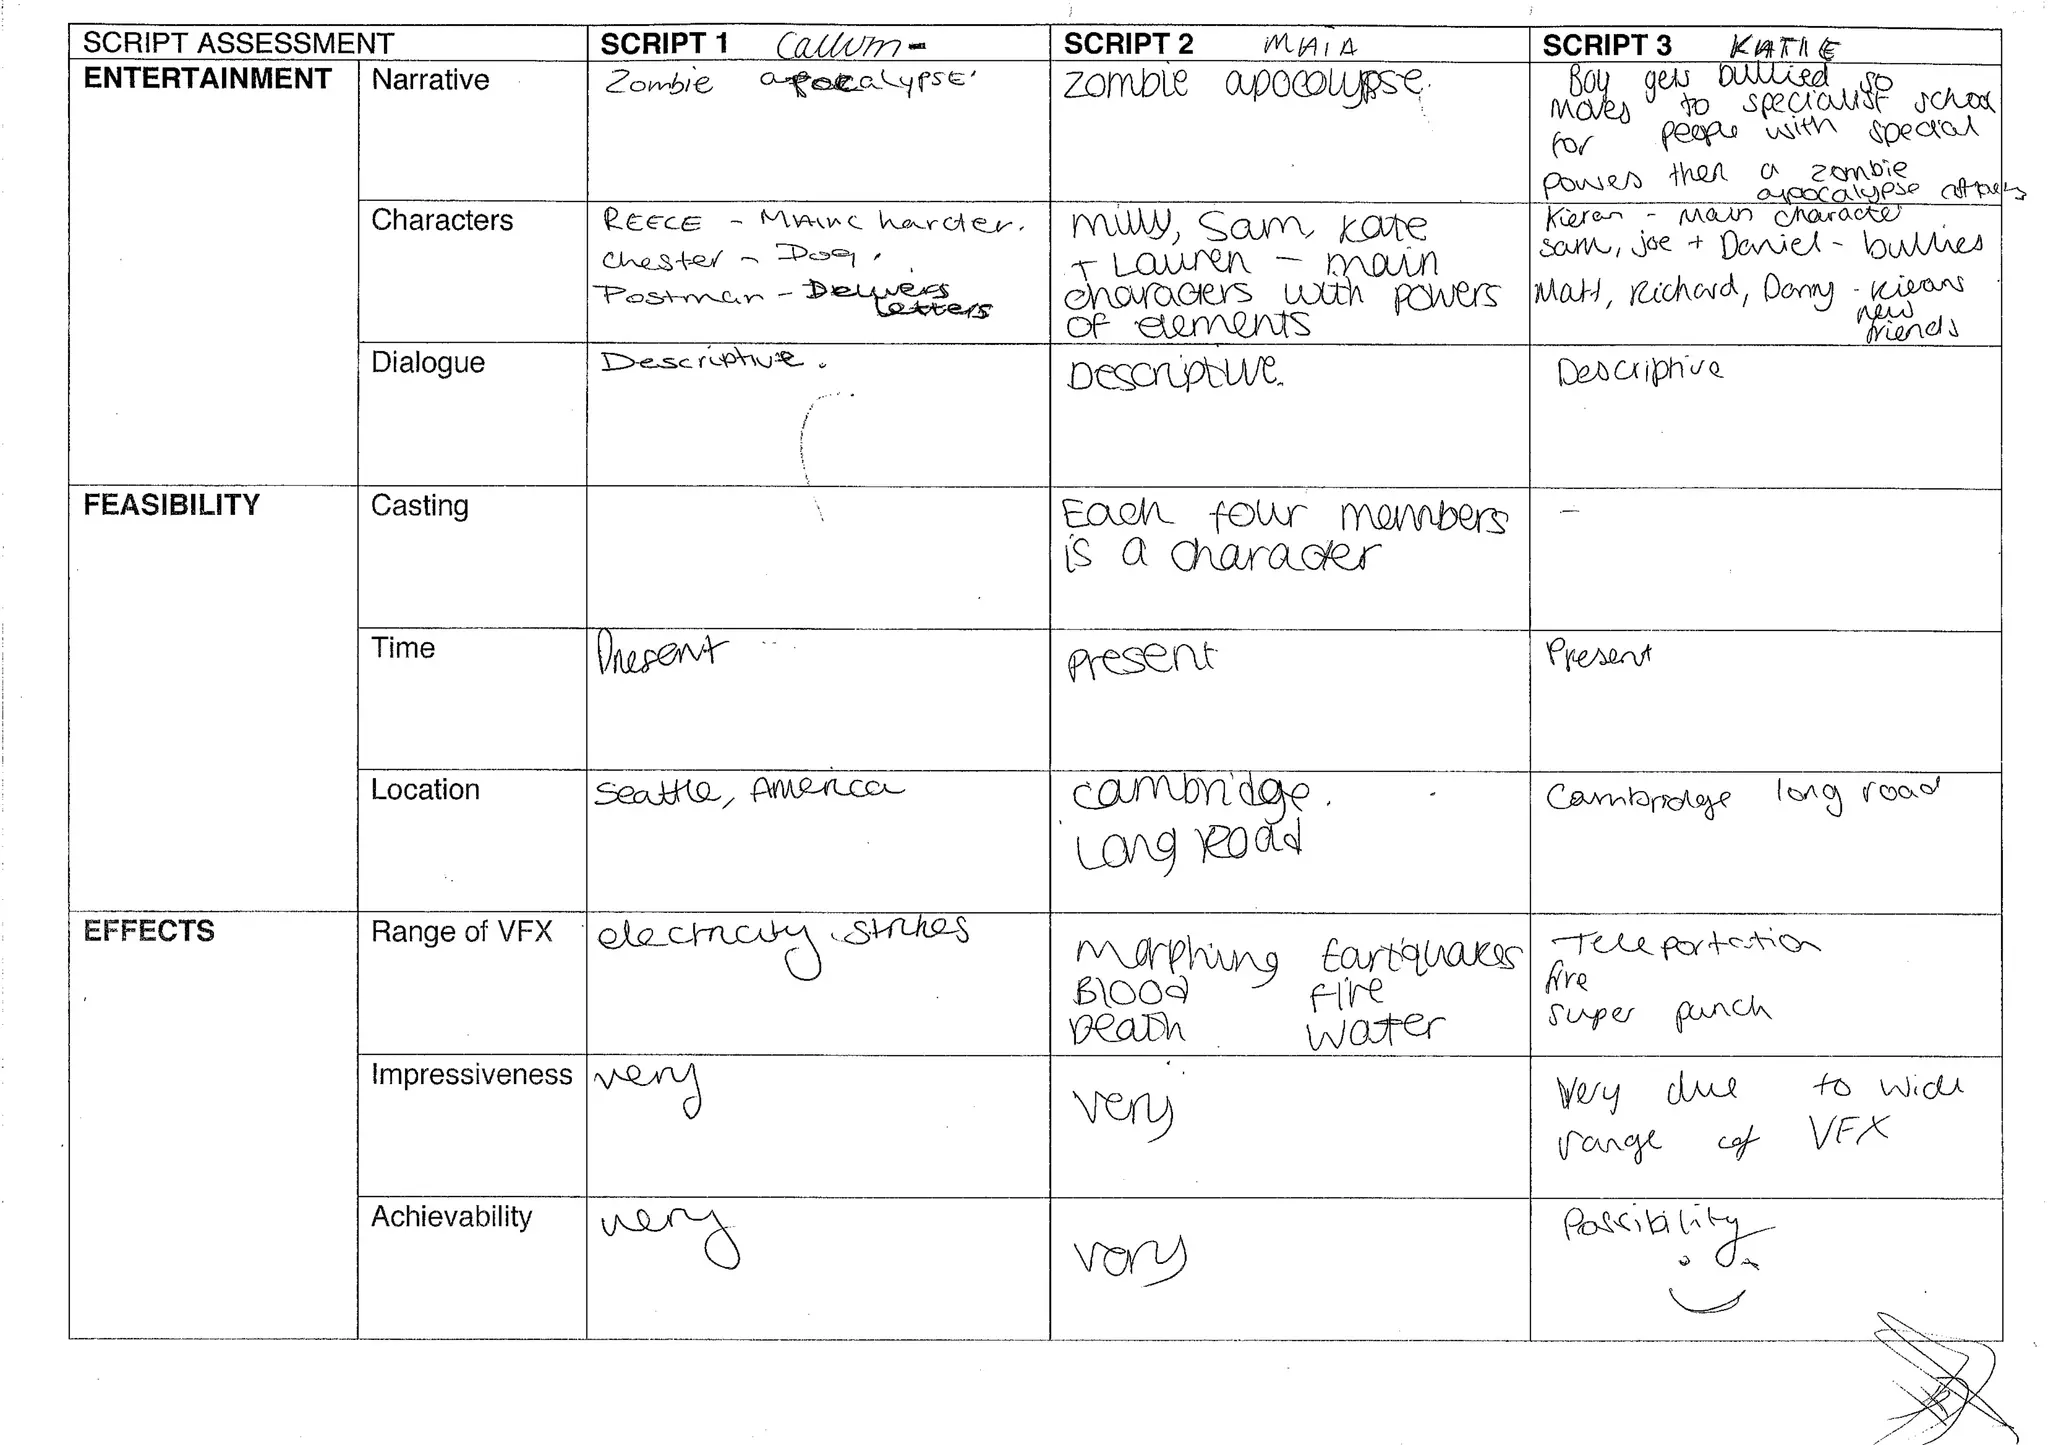 SCRIPT ASSESSMENT SCRIPT 1 Callum- SCRIPT 2 MAIA SCRIPT 3 KATIE
ENTERTAINMENT Narrative
Zombie apocalypse.
Zombie apocolypse.
Boy gets bullied so
moves to specialist school
for people with special
powers then a zombie
apocalypse attacks
Characters
REECE - MAINC harcter.
Chester - Dog.
Postman - Delivers
letters
Milly, Sam, Kate
+ Lauren - main
characters with powers
of elements
Kieran - Main character
Sam, Joe + Daniel - bullies
Matt, Richard, Danny - Kierans
new
friends
Dialogue
Descriptive.
Descriptive.
Descriptive
FEASIBILITY Casting
Each four members
is a character
-
Time
Present
present
Present
Location
Seattle, America
cambridge.
Long Road
Cambridge long road
EFFECTS Range of VFX
electricity strikes
Morphing Eartquakes
Blood Fire
Death Water
Teleportation
fire
super punch
Impressiveness
very
very
Very due to wide
range of VFX
Achievability
very
very
Possibility